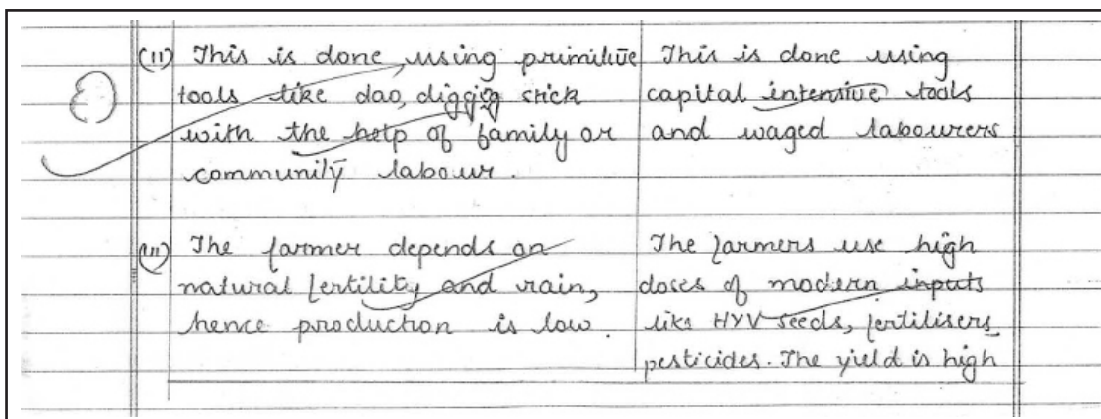 (ii) This is done, using primitive
tools like dao, digging stick
with the help of family or
community labour.
This is done using
capital intensive tools
and waged labourers
(iii) The farmer depends on
natural fertility and rain,
hence production is low.
The farmers use high
doses of modern inputs
like HYV seeds, fertilisers,
pesticides. The yield is high